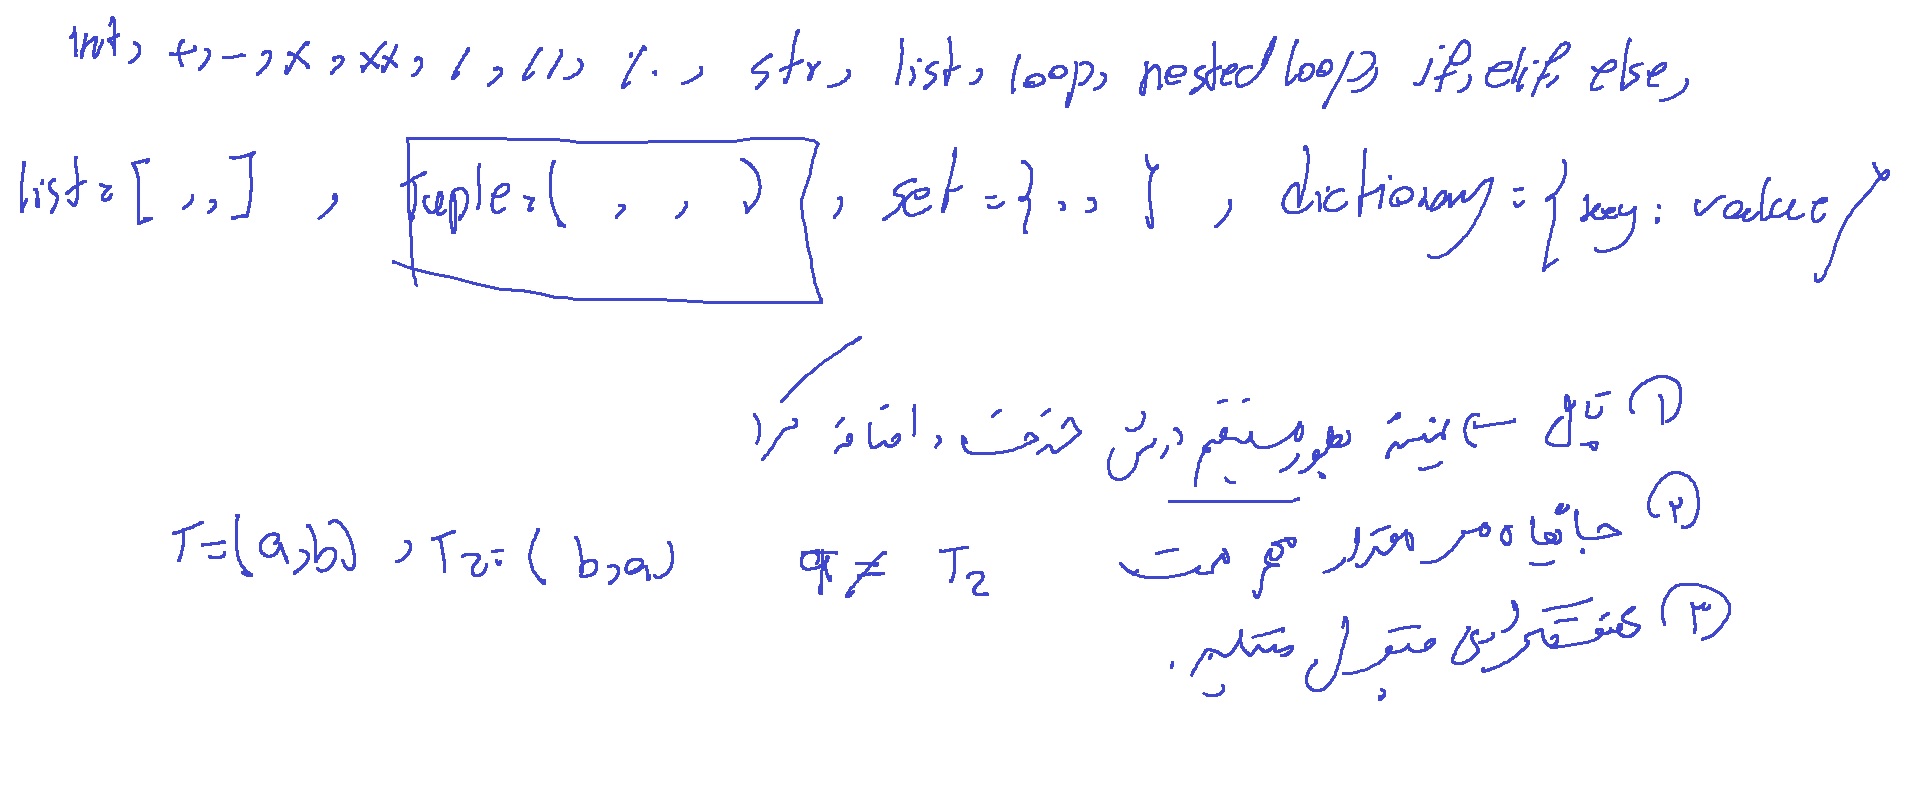 int, +, -, x, xx, /, //, %, str, list, loop, nested loop, if, elif, else,
list = [ , , ] , Tuple = ( , , ) , set = { , , } , dictionary = { key : value }
① تاپل ← نمیشه بطور مستقیم درش حذف و اضافه کرد
② جایگاه هر مقدار مهم هست
T = (a,b) , T2 = ( b,a) T ≠ T2
③ مقدار تکراری قبول میکنه.